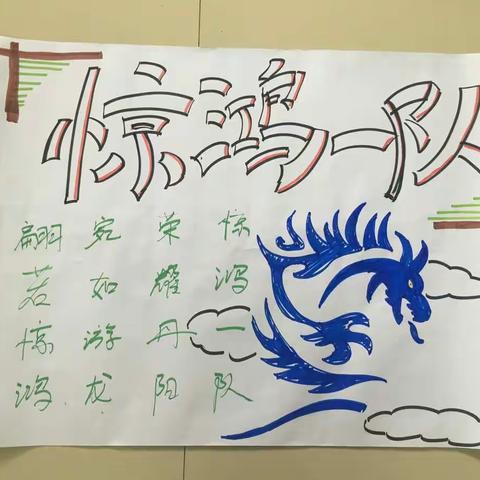 惊鸿一队
翩若惊鸿
宛如游龙
荣耀丹阳
惊鸿一队